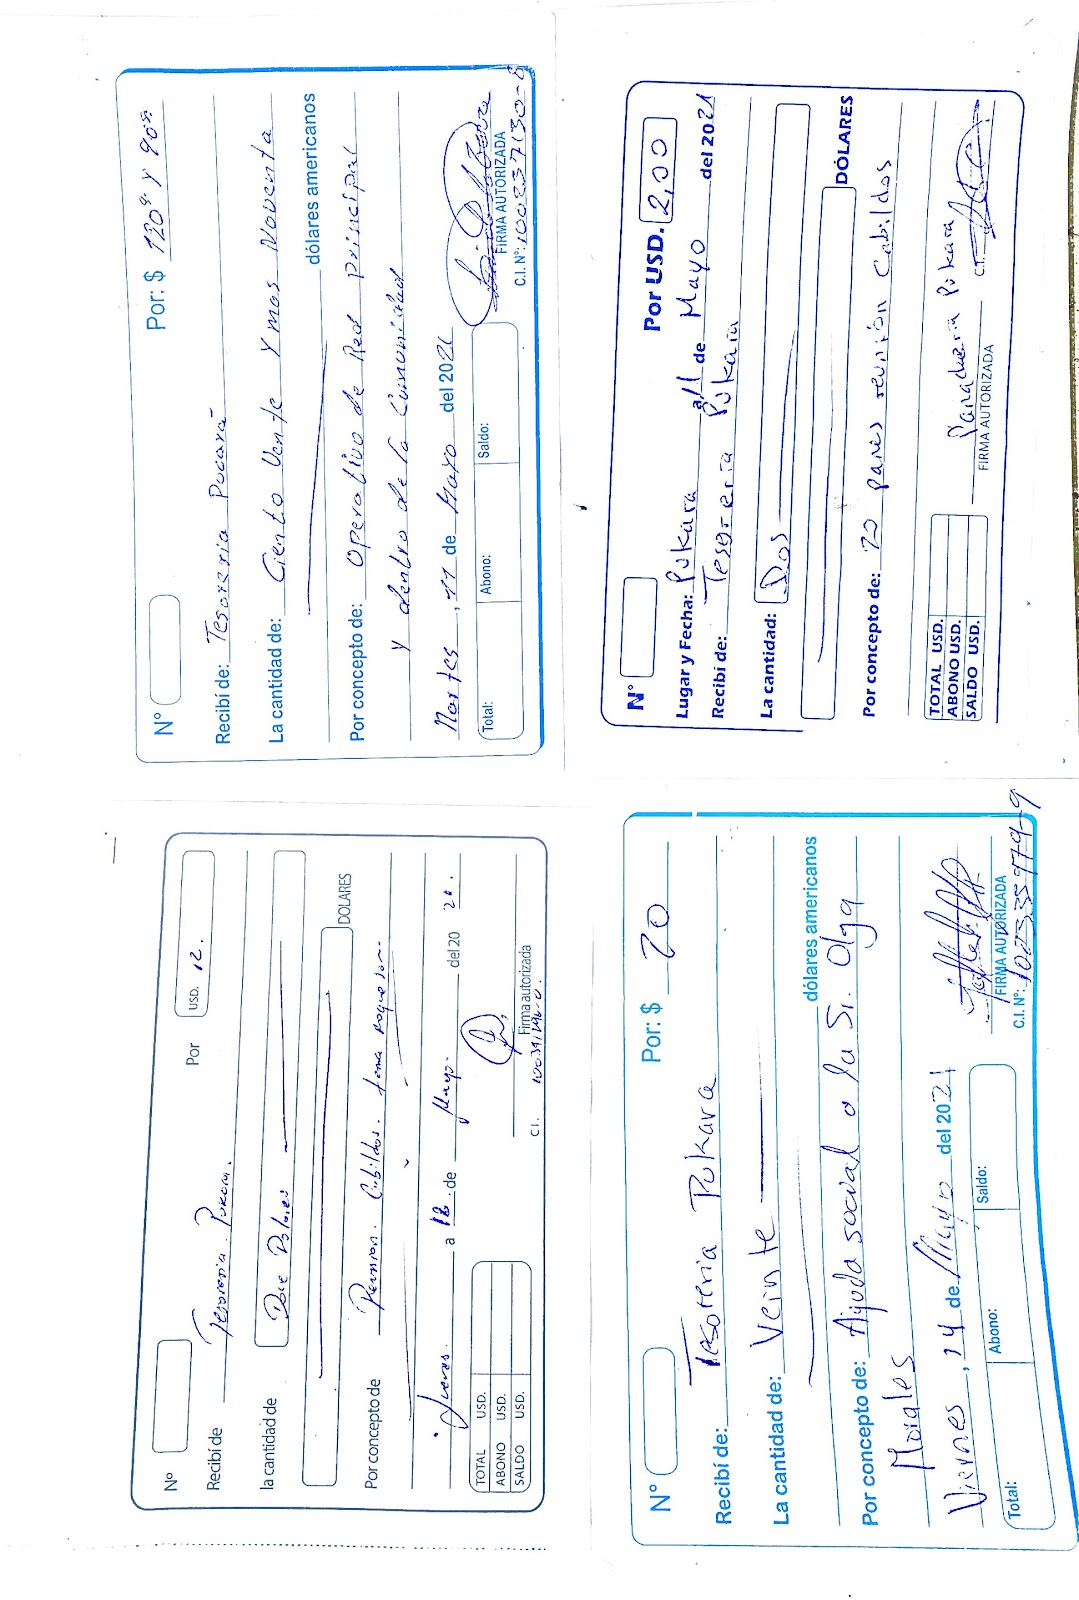 N°
Por: $ 120 y 90
Recibí de: Tesoreria Pucará
La cantidad de: Ciento Vente y mas Noventa
dólares americanos
Por concepto de: Operativo de Red principal
y dentro de la Comunidad
Martes, 11 de Mayo del 2021
Total: Abono: Saldo:
FIRMA AUTORIZADA
C.I. N°: 100237130-8
N°
Por USD. 2,00
Lugar y Fecha: Pukara a 11 de Mayo del 2021
Recibí de: Tesoreria Pukara
La cantidad: Dos
DÓLARES
Por concepto de: 20 panes reunión Cabildos
TOTAL USD.
ABONO USD.
SALDO USD.
Panaderia Pukara
FIRMA AUTORIZADA C.I.
Nº
Por USD. 12.
Recibí de Tesoreria Pucara.
la cantidad de Doce Dolares
DOLARES
Por concepto de Reunion. Cabildos. tema
Jueves. a de Mayo. del 20 21.
TOTAL USD.
ABONO USD.
SALDO USD.
Firma autorizada
C.I.
N°
Por: $ 20
Recibí de: Tesoreria Pukara
La cantidad de: Veinte
dólares americanos
Por concepto de: Ayuda social a la Sr. Olga
Morales
Viernes, 14 de Mayo del 2021
Total: Abono: Saldo:
FIRMA AUTORIZADA
C.I. N°: 100335979-9